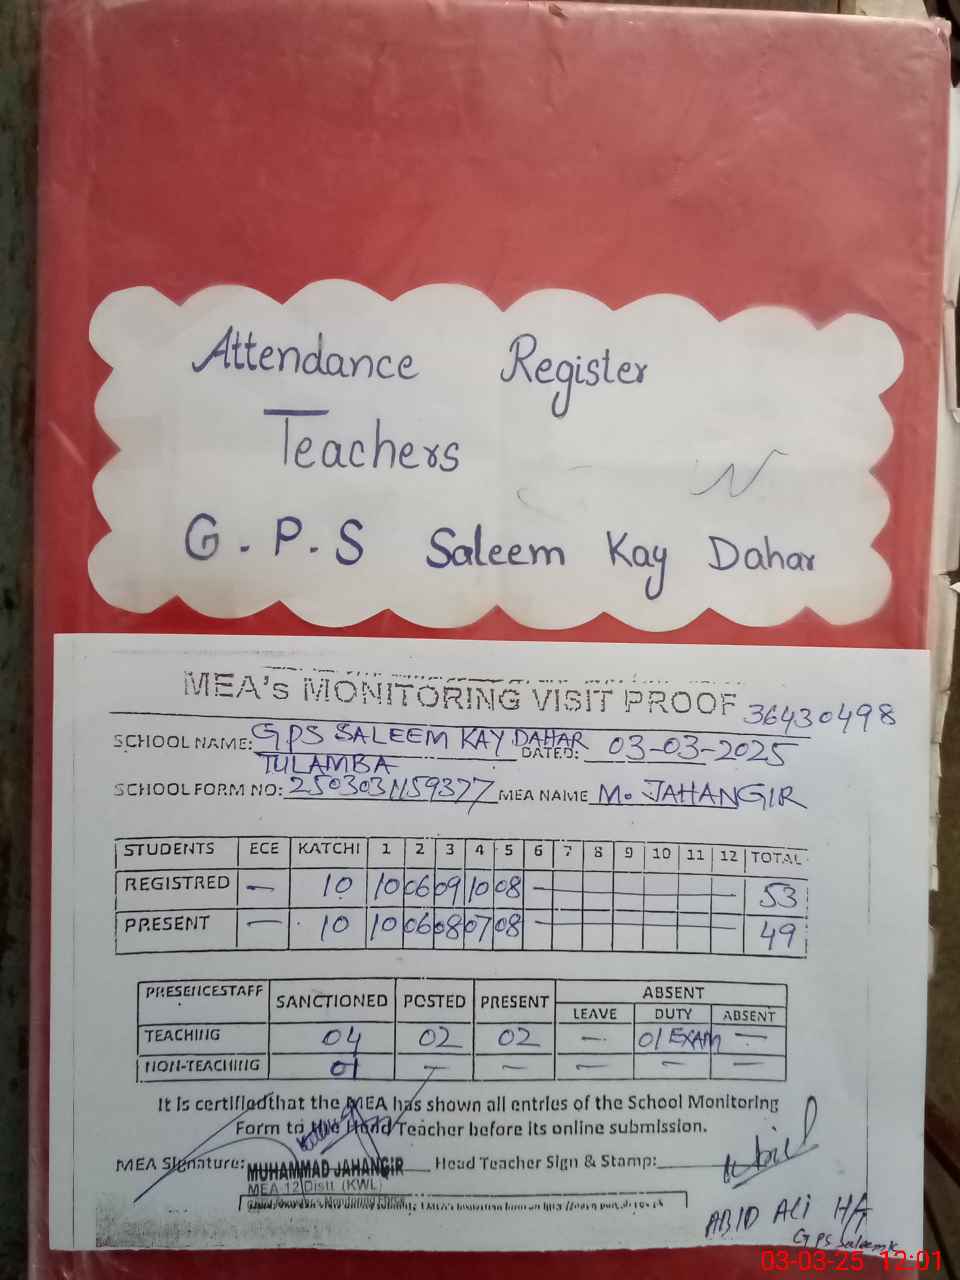 Attendance Register
Teachers
G.P.S Saleem Kay Dahar
MEA's MONITORING VISIT PROOF 36430498
SCHOOL NAME: GPS SALEEM KAY DAHAR DATED: 03-03-2025
TULAMBA
SCHOOL FORM NO: MEA NAME M. JAHANGIR
STUDENTS ECE KATCHI 1 2 3 4 5 6 7 8 9 10 11 12 TOTAL
REGISTRED — 10 10 06 09 10 08 — 53
PRESENT — 10 10 06 08 07 08 — 49
PRESENCESTAFF SANCTIONED POSTED PRESENT ABSENT
LEAVE DUTY ABSENT
TEACHING 04 02 02 — 01 EXAM —
NON-TEACHING 01 — — — — —
It is certifiedthat the MEA has shown all entries of the School Monitoring
Form to the Head Teacher before its online submission.
MEA Signature: MUHAMMAD JAHANGIR Head Teacher Sign & Stamp:
MEA 12 Distt. (KWL)
ABID ALI H/T
GPS Saleem K
03-03-25 12:01